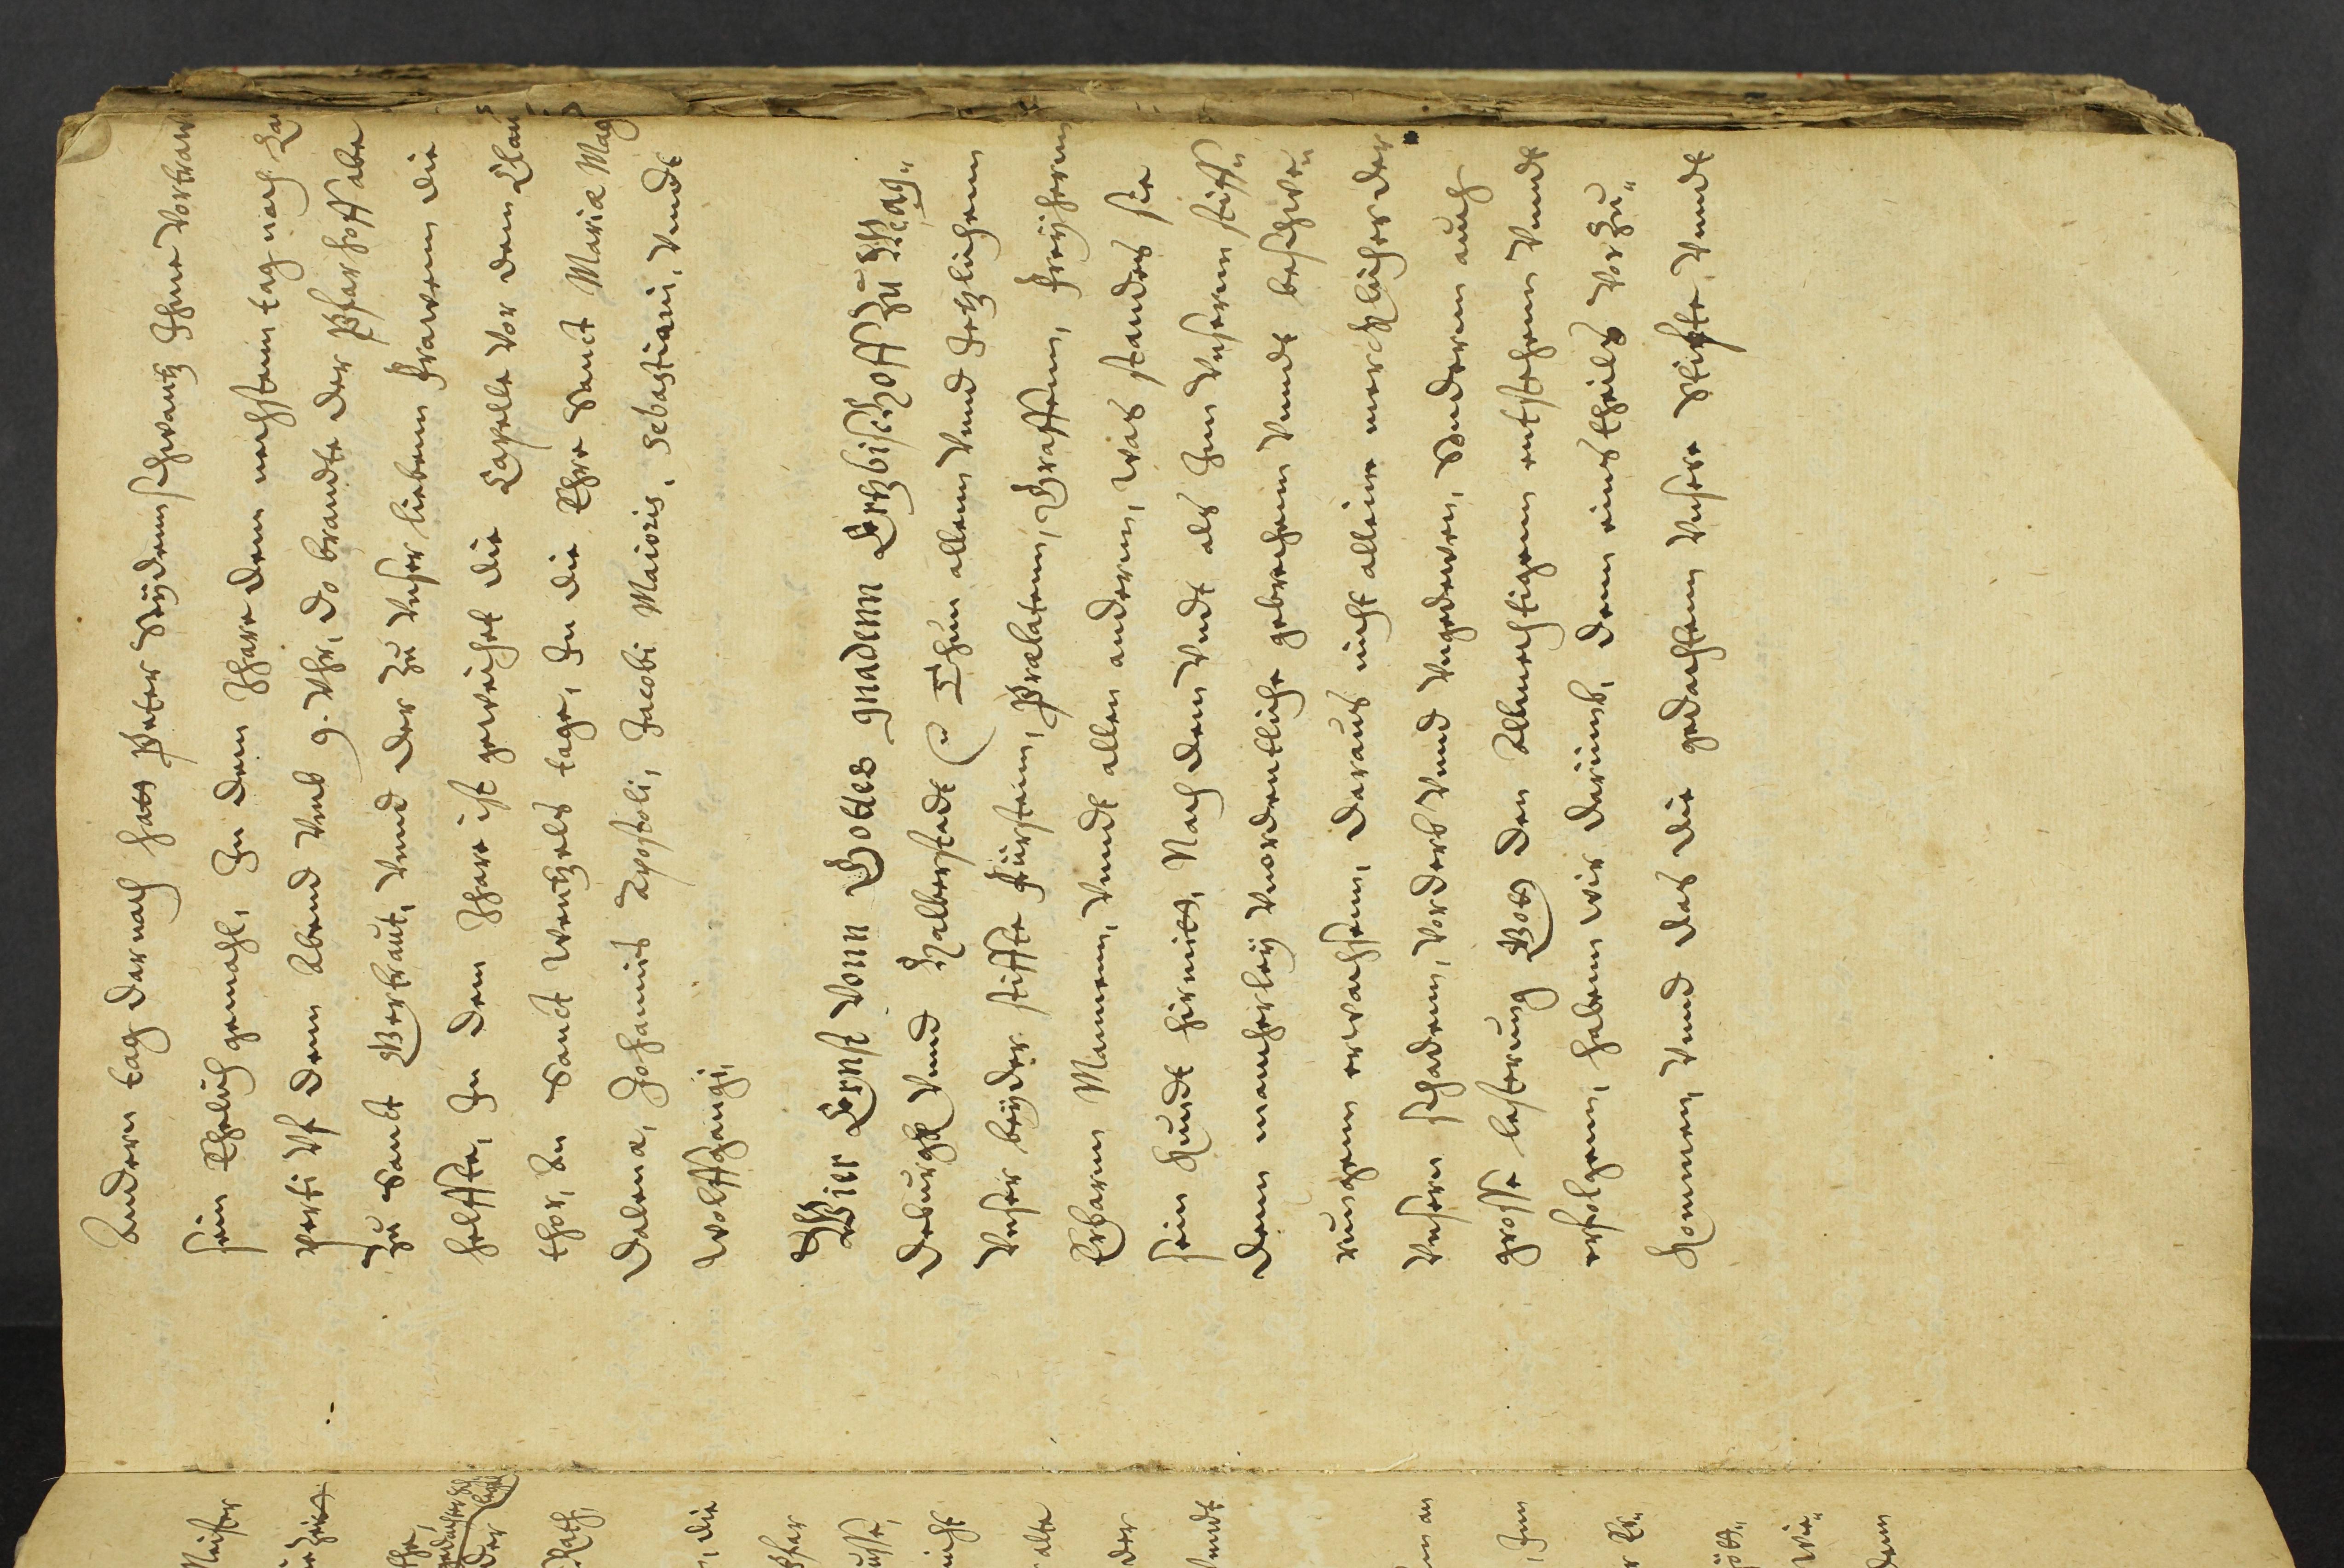 Andern tag darnach hatt Peter Seÿdenschwantz Ihme Vortraw
sein Ehelich gemahl, In dem Jhare dem nechstenn tag nach La
perti Vf denn Abend Vmb 9. Vhr, do brandte der Pfarhoff abe
zu Sanct Gertraut, Vnnd der zu Vnser liebenn Frawenn die
helffte, In dem Jhare ist geweihet die Capelle Vor dem Clau
thor, An Sanct Wentzels tage, In die Ehre Sanct Mariæ Mag
dalenæ, Johannis Apostoli, Jacobi Maioris, Sebastiani, Vnndt
Wolffgangi,
Wier Ernst Vonn Gottes gnadenn Ertzbischoff zu Mag„
deburgk Vnnd Halberstadt Thun allenn Vnnd Itzlichenn
Vnser beÿder stiffte Fürstenn, Prælatenn, Graffenn, Freÿherrnn
Erbarnn Mannenn, Vnndt allen anderen, was standes sie
sein Kundt hirmitt, Nach dem Vndt als Inn Vnserenn stiff„
denn mancherleÿ Vnordentliche gebrechenn Vnndt beschwe„
rungenn erwachsenn, daraus nicht alleine mercklicher der
Vnsern schadenn, Vorderb Vnnd Vngedeÿen, Sundern auch
grosse lesterung Gott den Allmechtigenn entstehenn Vnndt
erfolgenn, habenn wir darumb, demn einstheils Vorzu„
kommen, Vnnd das die gedachtenn Vnsere Stiffte, Vnndt
Meister
der
Rath,
die
Pfar
nicht
alte
der
Vnndt
Inn
dem